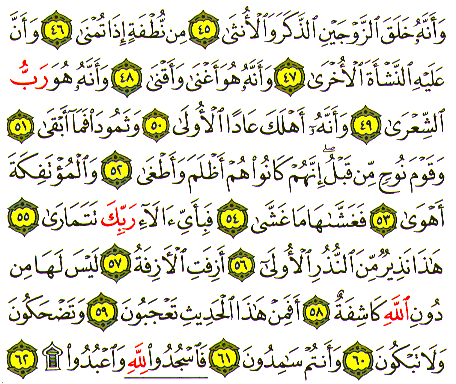 وَأَنَّهُۥ خَلَقَ ٱلزَّوْجَيْنِ ٱلذَّكَرَ وَٱلْأُنثَىٰ ٤٥ مِن نُّطْفَةٍ إِذَا تُمْنَىٰ ٤٦ وَأَنَّ
عَلَيْهِ ٱلنَّشْأَةَ ٱلْأُخْرَىٰ ٤٧ وَأَنَّهُۥ هُوَ أَغْنَىٰ وَأَقْنَىٰ ٤٨ وَأَنَّهُۥ هُوَ رَبُّ
ٱلشِّعْرَىٰ ٤٩ وَأَنَّهُۥٓ أَهْلَكَ عَادًا ٱلْأُولَىٰ ٥٠ وَثَمُودَا۟ فَمَآ أَبْقَىٰ ٥١
وَقَوْمَ نُوحٍ مِّن قَبْلُ ۖ إِنَّهُمْ كَانُوا۟ هُمْ أَظْلَمَ وَأَطْغَىٰ ٥٢ وَٱلْمُؤْتَفِكَةَ
أَهْوَىٰ ٥٣ فَغَشَّىٰهَا مَا غَشَّىٰ ٥٤ فَبِأَىِّ ءَالَآءِ رَبِّكَ تَتَمَارَىٰ ٥٥
هَٰذَا نَذِيرٌ مِّنَ ٱلنُّذُرِ ٱلْأُولَىٰٓ ٥٦ أَزِفَتِ ٱلْءَازِفَةُ ٥٧ لَيْسَ لَهَا مِن
دُونِ ٱللَّهِ كَاشِفَةٌ ٥٨ أَفَمِنْ هَٰذَا ٱلْحَدِيثِ تَعْجَبُونَ ٥٩ وَتَضْحَكُونَ
وَلَا تَبْكُونَ ٦٠ وَأَنتُمْ سَٰمِدُونَ ٦١ فَٱسْجُدُوا۟ لِلَّهِ وَٱعْبُدُوا۟ ۩ ٦٢